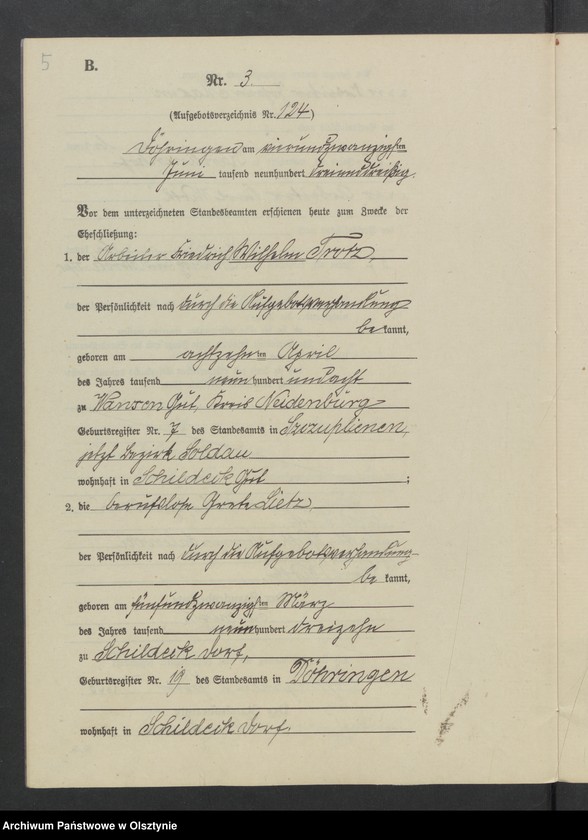 5
B.
Nr. 3
(Aufgebotsverzeichnis Nr. 124)
Döhringen am vierundzwanzigsten
Juni tausend neunhundert dreiunddreißig.
Vor dem unterzeichneten Standesbeamten erschienen heute zum Zwecke der
Eheschließung:
1. der Arbeiter Friedrich Wilhelm Trotz,
der Persönlichkeit nach durch die Aufgebotsverhandlung
be kannt,
geboren am achtzehnten April
des Jahres tausend neun hundert undacht
zu Wansen Gut, Kreis Neidenburg
Geburtsregister Nr. 7 des Standesamts in Szczuplienen,
jetzt Bezirk Soldau
wohnhaft in Schildeck Gut ;
2. die berufslose Grete Lietz,
der Persönlichkeit nach durch die Aufgebotsverhandlung
be kannt,
geboren am fünfundzwanzigsten März
des Jahres tausend neun hundert dreizehn
zu Schildeck Dorf,
Geburtsregister Nr. 19 des Standesamts in Döhringen
wohnhaft in Schildeck Dorf.
Archiwum Państwowe w Olsztynie